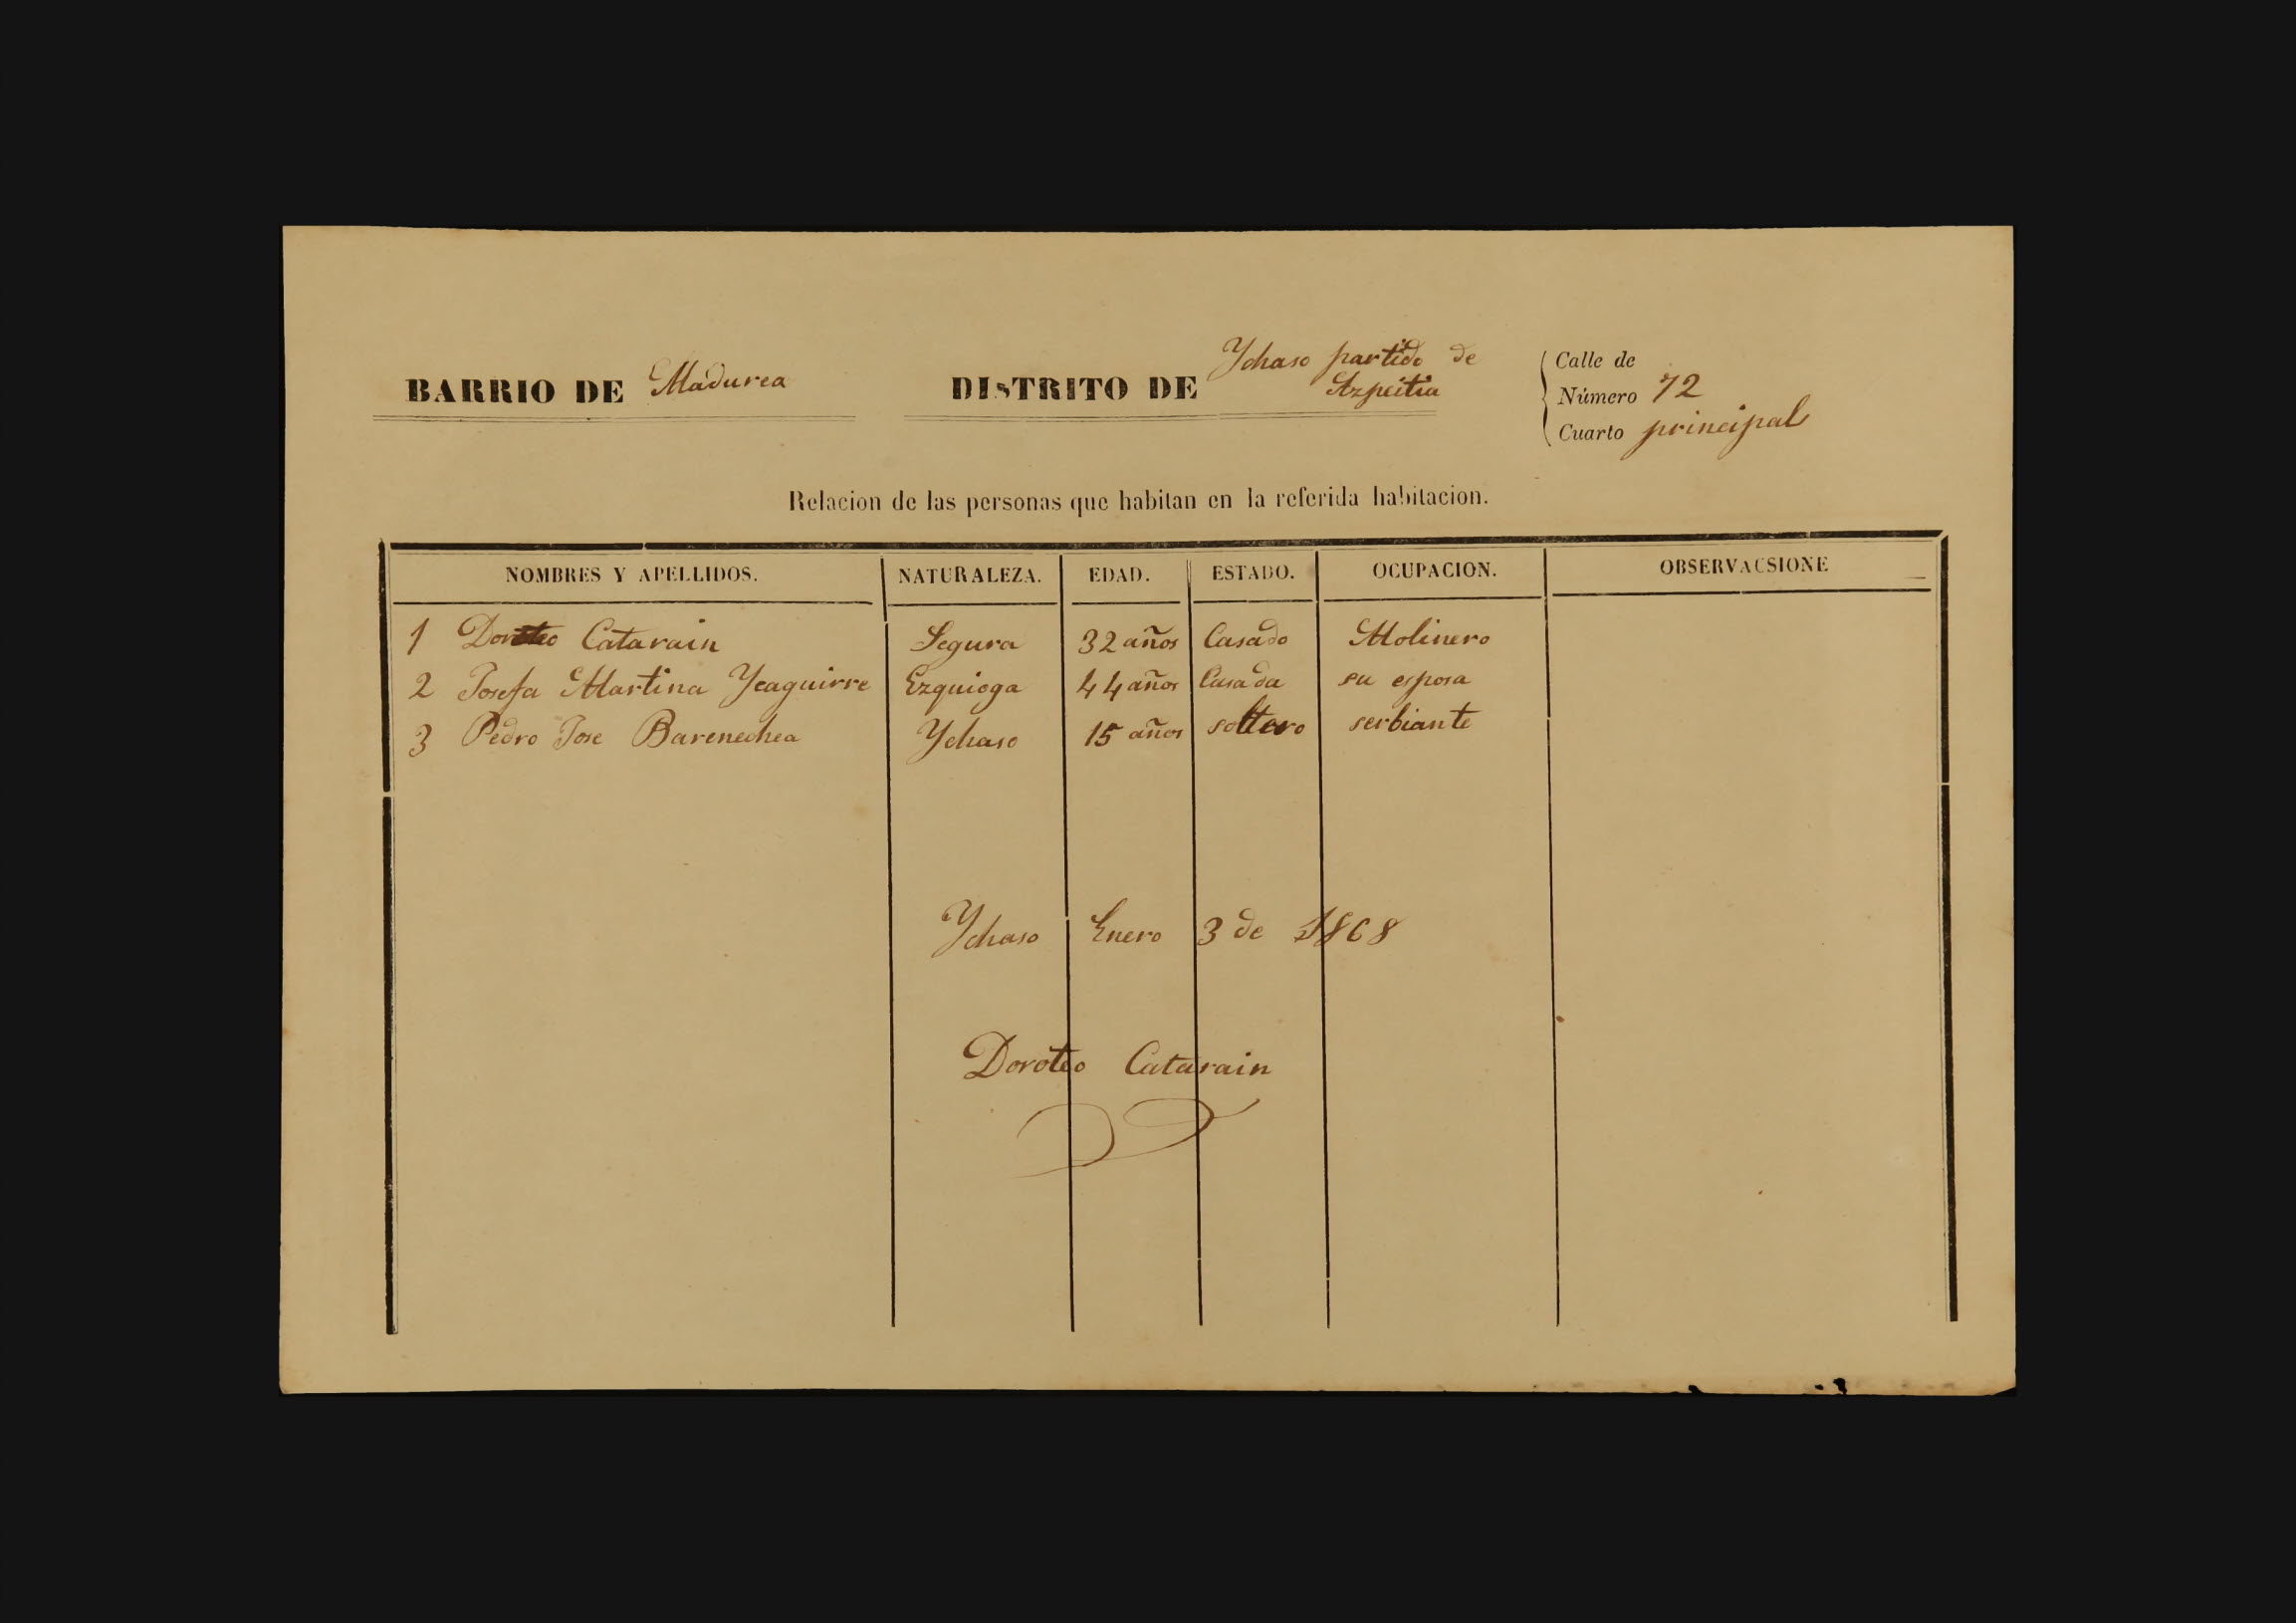 BARRIO DE Madurea
DISTRITO DE Ychaso partido de
Azpeitia
Calle de
Número 72
Cuarto principal
Relacion de las personas que habitan en la referida habitacion.
NOMBRES Y APELLIDOS. NATURALEZA. EDAD. ESTADO. OCUPACION. OBSERVACSIONE
1 Doroteo Catarain Segura 32 años Casado Molinero
2 Josefa Martina Yeaguirre Ezquioga 44 años Casada su esposa
3 Pedro Jose Barenechea Ychaso 15 años soltero serbiante
Ychaso Enero 3 de 1868
Doroteo Catarain